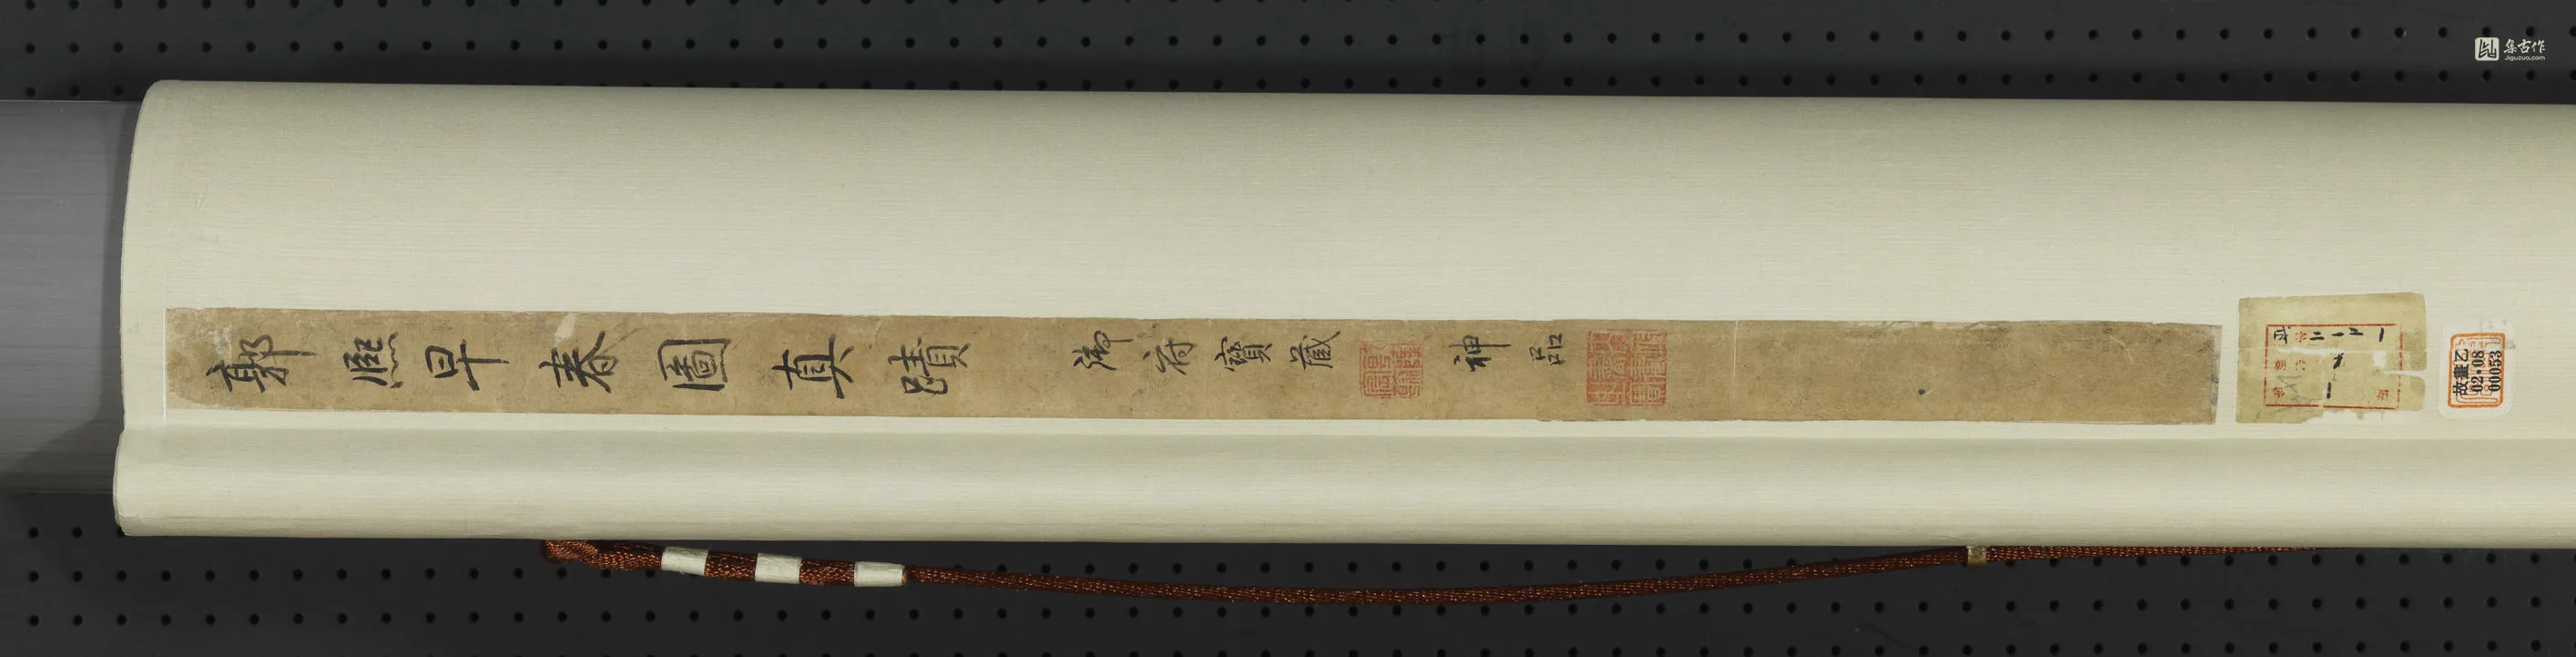 郭熙早春圖真蹟 御府寶藏 神品
故畫乙
02·08
00053
集古作
Jiguzuo.com